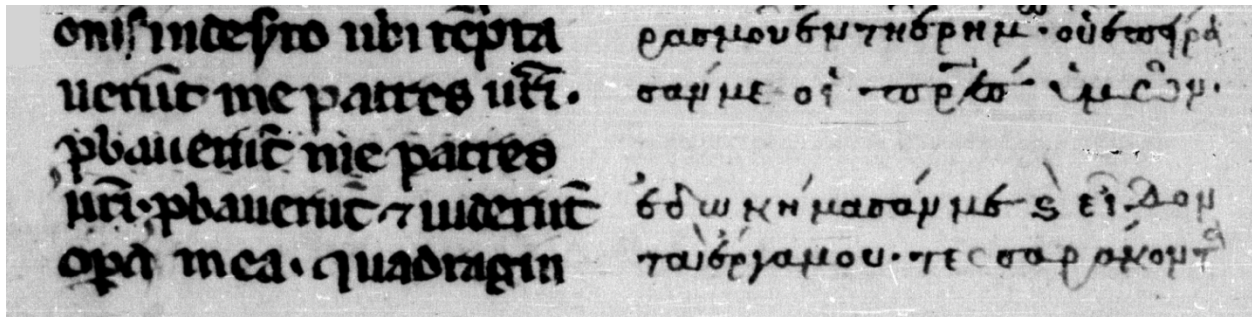 onis in deserto ubi tēpta
uerūt me patres ur̄i.
ꝓbauerūt me patres
ur̄i. ꝓbauerūt ⁊ uiderūt
oꝑa mea. quadragin
ρασμου εν τη ερημ. οὑ επειρα
σάν με οἱ πρ̅ες ὑμῶν.
ἐδωκήμασάν με ϗ εἰδον
τα ἐργα μου. τεσσαράκοντα